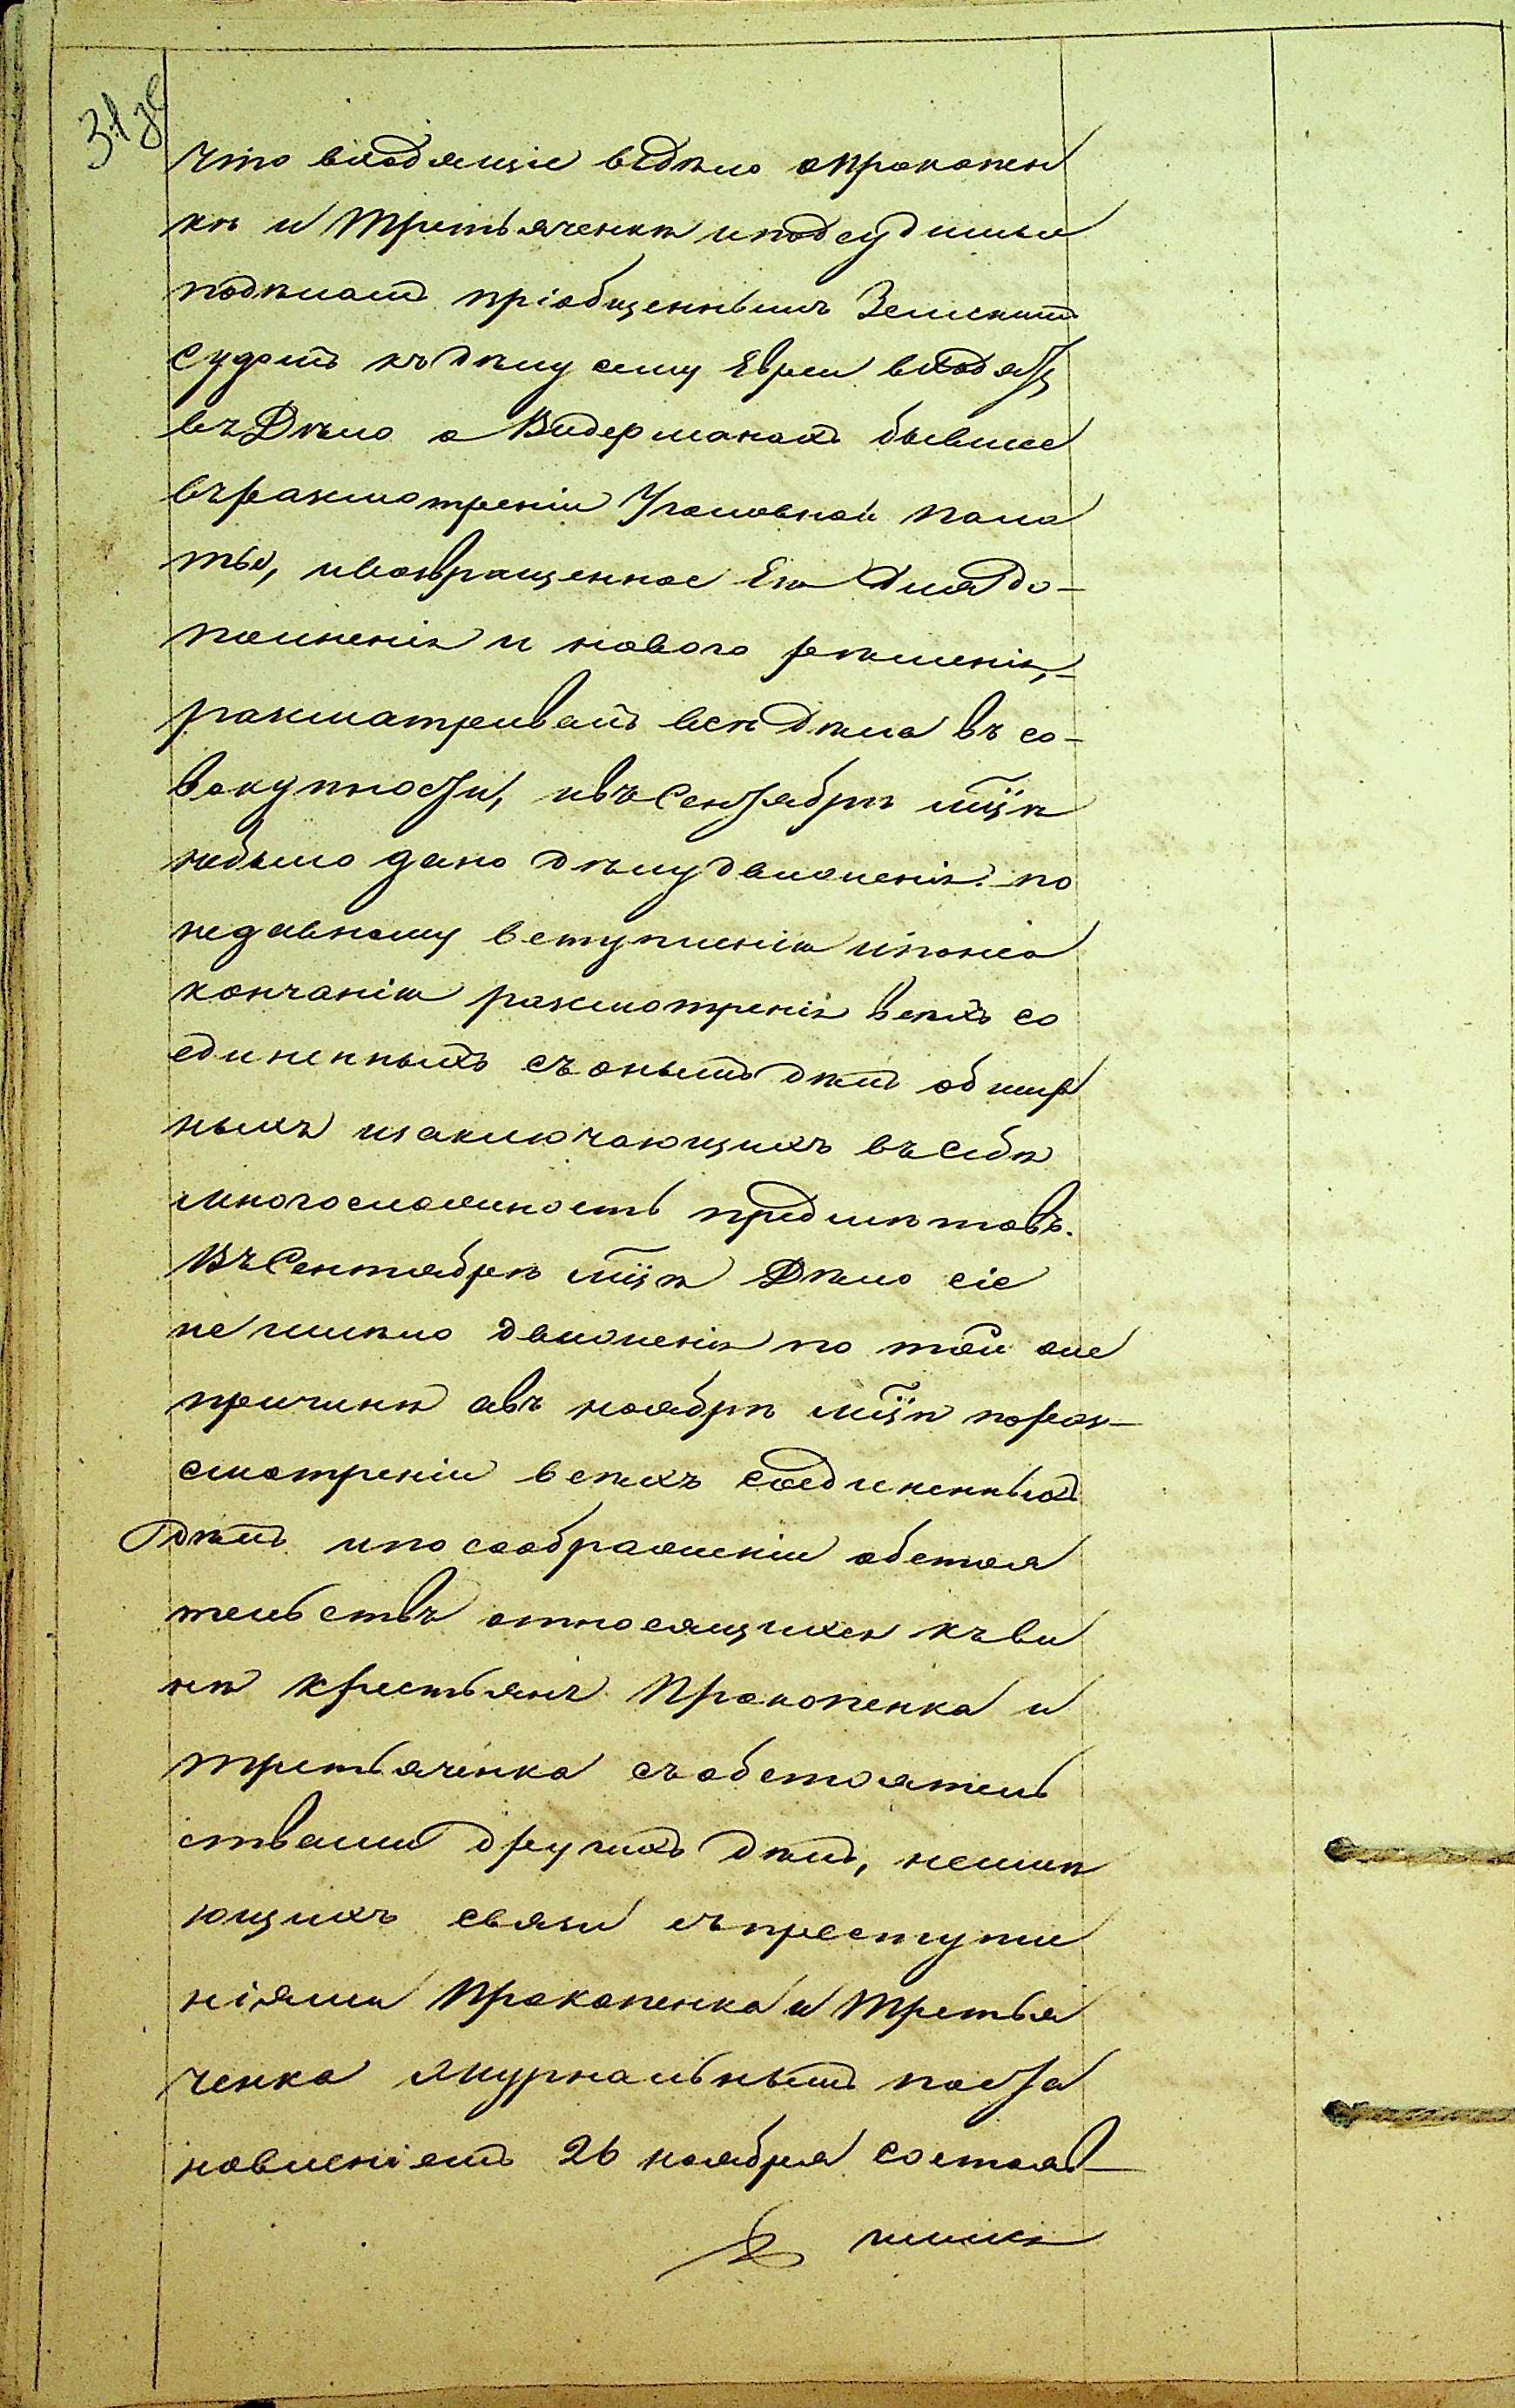 31 об
что входящіе въдѣло опрокопен
кѣ и Третьяченкѣ иподсудимые
подѣламъ пріобщеннымъ Земскимъ
Судомъ къ дѣлу сему Евреи входятъ
въ Дѣло о Видерманахъ бывшее
въразсмотреніи Уголовной пала
ты, ивозвращенное Ею для до-
полненія и новаго решенія,-
разсматривалъ всѣ дѣла въ со-
вокупности, ивъ Сентябрѣ мцѣ
небыло дано дѣлу движенія по
недавнему вступленію ипонео
кончанію разсмотренія всѣхъ со
единенныхъ съ онымъ дѣлъ обшир
ныхъ изаключающихъ въ себѣ
многосложность предметовъ.
Въ Сентябрѣ мцѣ Дѣло сіе
не имѣло движенія по той же
причинѣ авъ ноябрѣ мцѣ пораз-
смотреніи всѣхъ соединенныхъ
дѣлъ ипо соображеніи обстоя
тельствъ относящихся къ ви
нѣ крестьянъ Прокопенка и
третьяченка съ обстоятель
ствами другихъ дѣлъ, неимѣ
ющихъ связи съ преступле
ніями Прокопенка и Третья
ченка журнальнымъ поста
новленіемъ 26 ноября состояв-
шимся